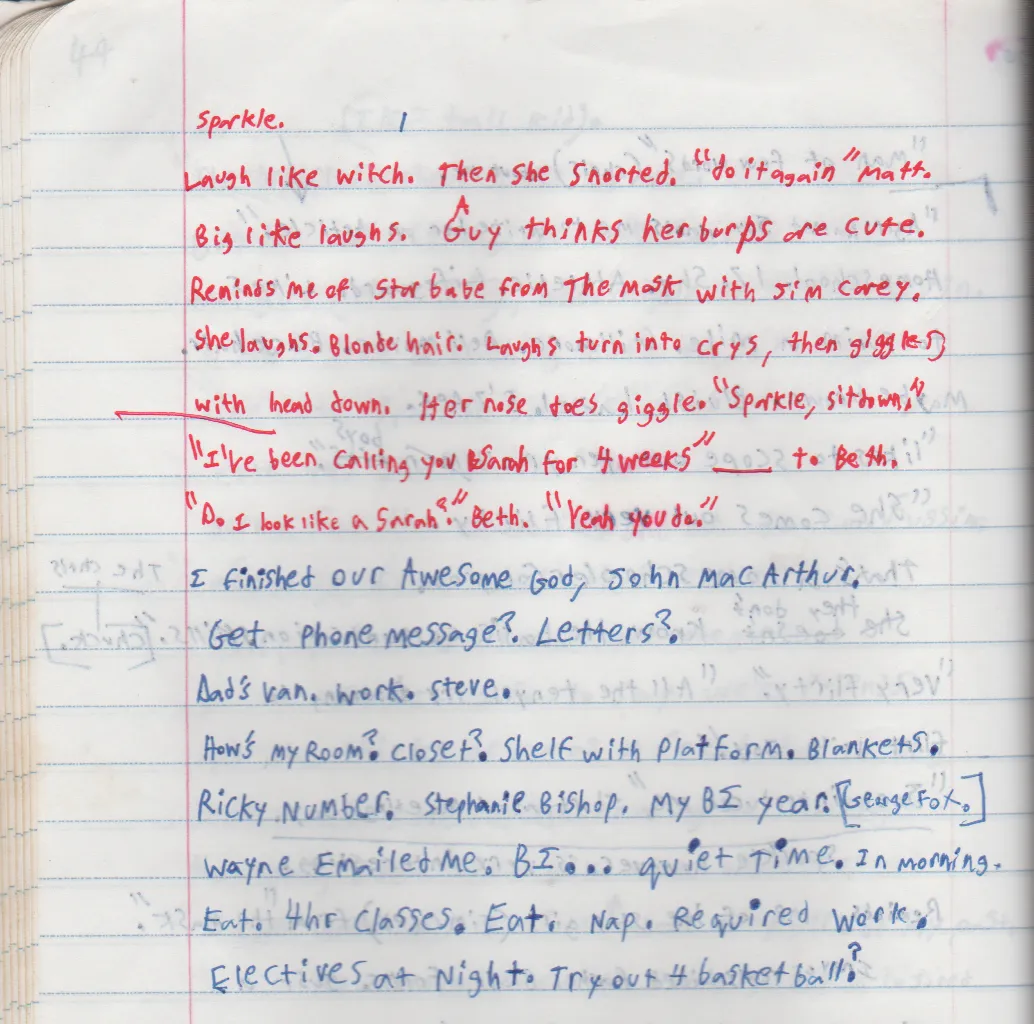 Sparkle.
Laugh like witch. Then she snorted. "do it again" Matt.
A
Big like laughs. Guy thinks her burps are cute.
Reminds me of Star babe from The Mask with Jim Carey.
She laughs. Blonde hair. Laughs turn into crys, then giggles
with head down. Her nose does giggle. "Sparkle, sit down."
"I've been calling you Sarah for 4 weeks" ____ to Beth.
"Do I look like a Sarah?" Beth. "Yeah you do."
I finished our Awesome God, John MacArthur.
Get phone message?. Letters?.
Dad's van. work. Steve.
How's my Room? Closet? Shelf with Platform. Blankets.
Ricky Number. Stephanie Bishop. My BI year. [George Fox.]
Wayne Emailed Me. BI... quiet Time. In morning.
Eat. 4hr Classes. Eat. Nap. Required Work.
Electives at Night. Try out 4 basketball?